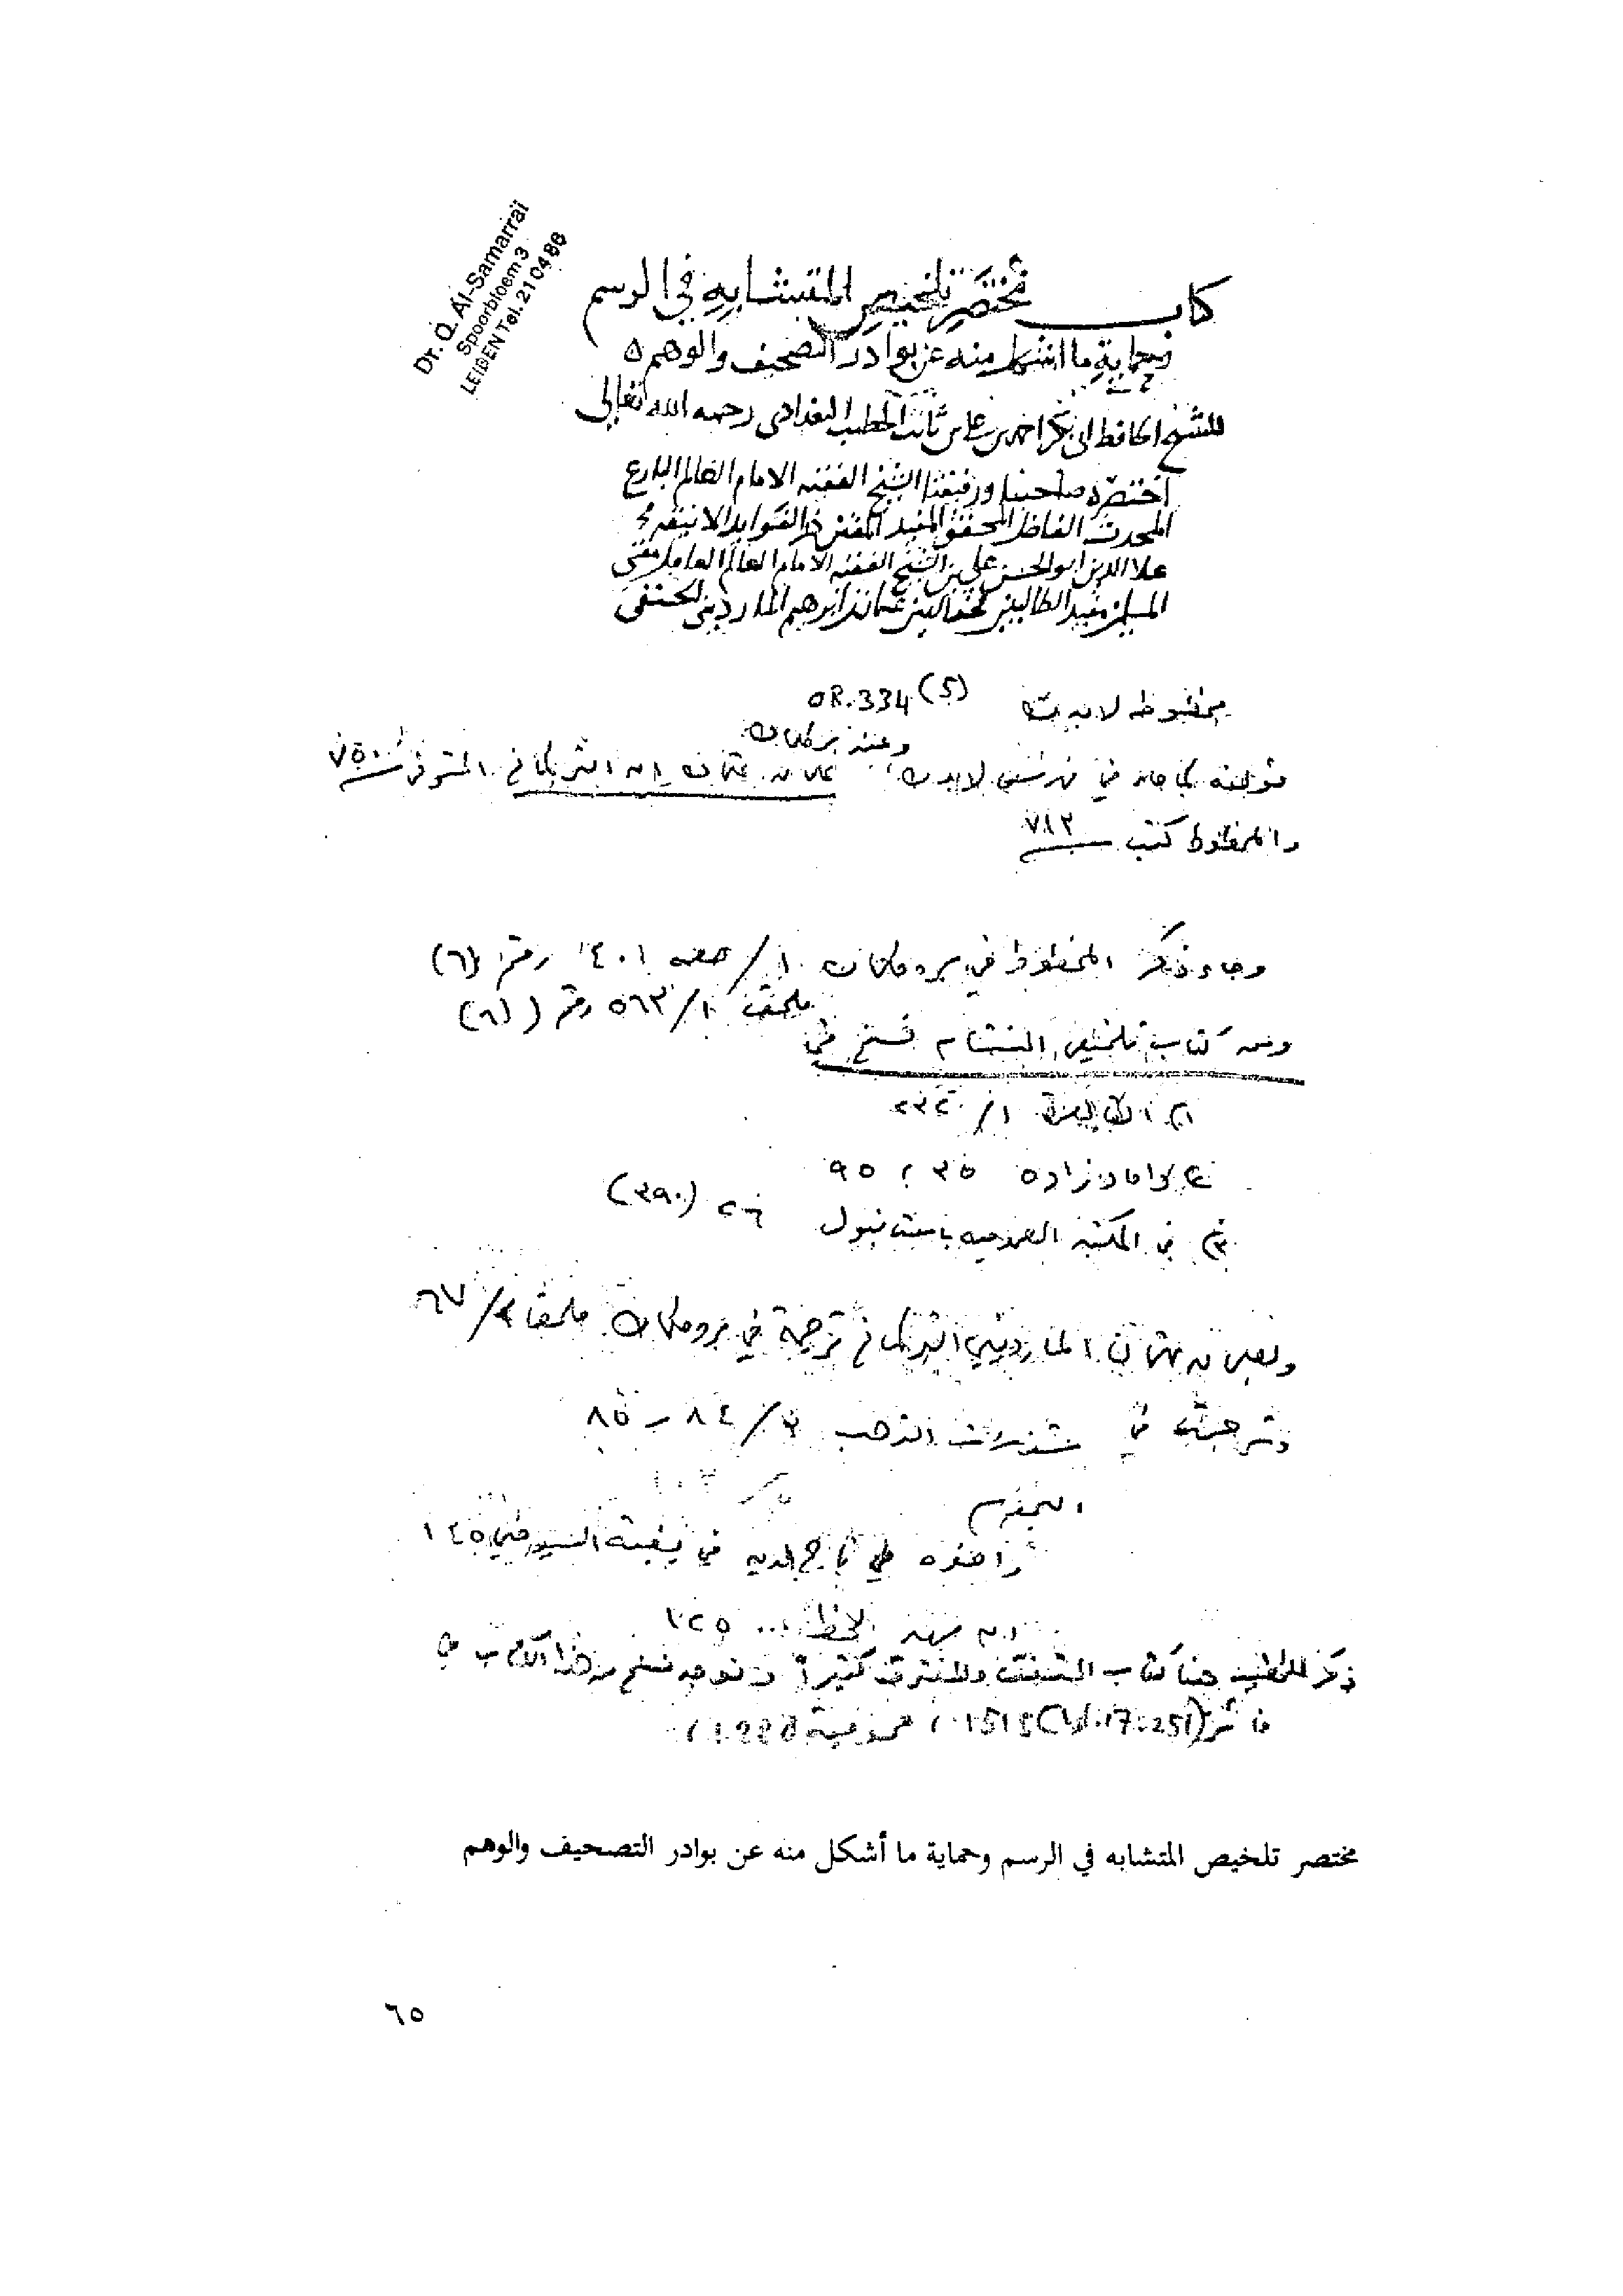 Dr. Q. Al-Samarrai
Spoorbloem 3
LEIDEN Tel. 210486
كتاب مختصر تلخيص المتشابه في الرسم
وحماية ما اشكل منه عن بوادر التصحيف والوهم
للشيخ الحافظ ابي بكر احمد بن علي بن ثابت الخطيب البغدادي رحمه الله تعالى
اختصره صاحبنا ورفيقنا الشيخ الفقيه الامام العالم البارع
المحدث الفاضل المحقق المفيد المفنن ذو الفوايد
علا الدين ابو الحسن علي بن الشيخ الفقيه الامام العالم العامل مفتي
المسلمين مفيد الطالبين عثمان بن ابرهيم المارديني الحنفي
مخطوطة لايدن OR.334 (5)
وعند بركلمان
مؤلفه كما جاء في فهرس لايدن علي بن عثمان ابن التركماني المتوفى ٧٥٠
والمخطوط كتب ٧٨٢
وجاء ذكر المخطوط في بروكلمان ١/ صفحة ٤٠١ رقم (٦)
ملحق ١/ ٥٦٣ رقم (٦)
ومن كتاب تلخيص المتشابه نسخ في
داماد زاده ٣٥، ٩٥
٣) في المكتبة العمومية باستانبول ٢٦ (٣٩٠)
ولعلي بن عثمان المارديني التركماني ترجمة في بروكلمان ملحق ٢/ ٦٧
وترجمته في شذرات الذهب ٨٤ – ٨٥
النجوم
واخوه تاج الدين في بغية السيوطي ١٤٥
ابن فهد لحظ ١٢٥
ذكر للخطيب هنا كتاب المتفق والمفترق كثيرا وتوجد نسخ من هذا الكتاب في
مختصر تلخيص المتشابه في الرسم وحماية ما أشكل منه عن بوادر التصحيف والوهم
٦٥